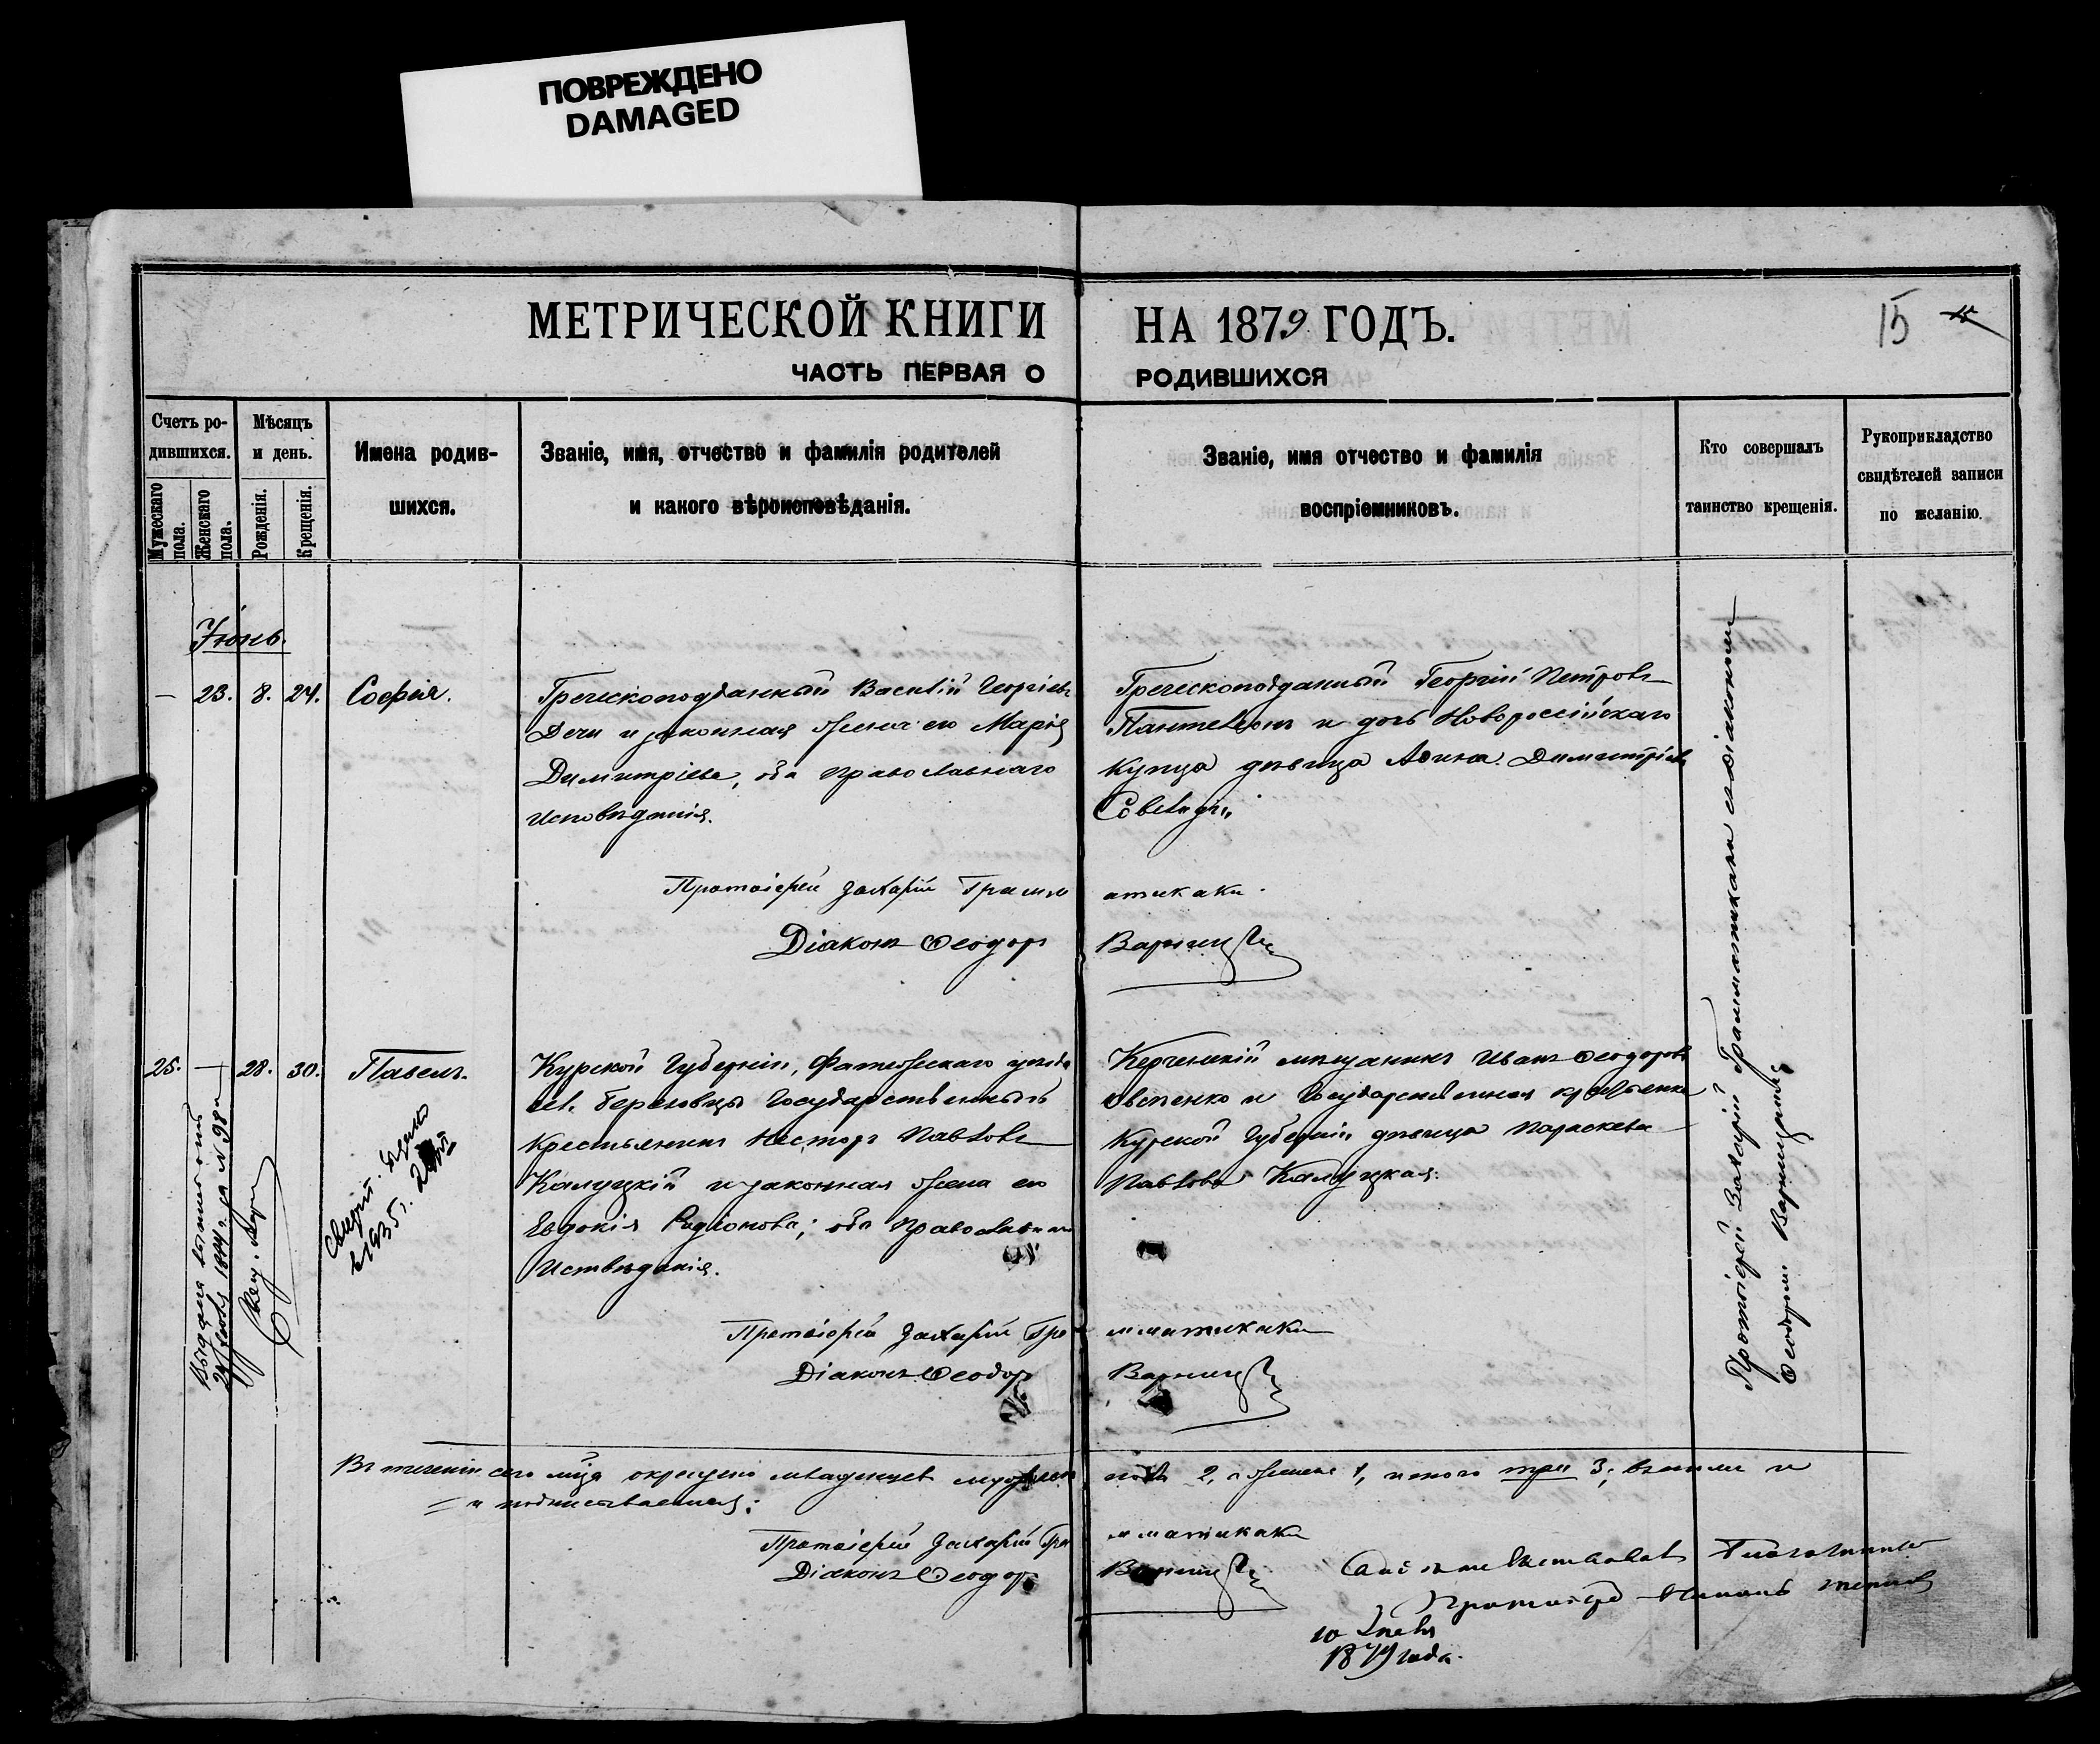 ПОВРЕЖДЕНО
DAMAGED
МЕТРИЧЕСКОЙ КНИГИ НА 1879 ГОДЪ.
15
ЧАСТЬ ПЕРВАЯ О РОДИВШИХСЯ
Счетъ ро-
дившихся.
Мужескаго пола.
Женскаго пола.
Мѣсяцъ
и день.
Рожденія.
Крещенія.
Имена родив-
шихся.
Званіе, имя, отчество и фамилія родителей
и какого вѣроисповѣданія.
Званіе, имя отчество и фамилія
воспріемниковъ.
Кто совершалъ
таинство крещенія.
Рукоприкладство
свидѣтелей записи
по желанію.
Іюнь.
— 23. 8. 24. Софія.
Греческоподданный Василій Георгіевъ
и законная жена его Марія
Димитріева, оба православнаго
исповѣданія.
Греческоподданный Георгій Петровъ
Пантелеонъ и дочь Новороссійскаго
купца дѣвица Аѳина Димитріева
Протоіерей Захарій Грамматикаки.
Діаконъ Ѳеодоръ
25. — 28. 30. Павелъ.
Курской Губерніи, Фатежскаго уѣзда
сел. Березовца Государственный
крестьянинъ Несторъ Павловъ
Калуцкій и законная жена его
Евдокія Родіонова; оба православнаго
исповѣданія.
Керченскій мѣщанинъ Иванъ Ѳеодоровъ
Овсѣенко и Государственная крестьянка
Курской Губерніи дѣвица Параскева
Павлова Калуцкая.
Протоіерей Захарій Грамматикаки
Діаконъ Ѳеодоръ
1884 г. за №
1935 г.
Протоіерей Захарій Грамматикаки съ діакономъ
Ѳеодоромъ
Въ теченіи сего м-ца окрещено младенцевъ мужескаго пола 2, а женска 1, и того три 3; въ чемъ и
= и подписываемся:
Протоіерей Захарій Грамматикаки
Діаконъ Ѳеодоръ
10
1879 года.